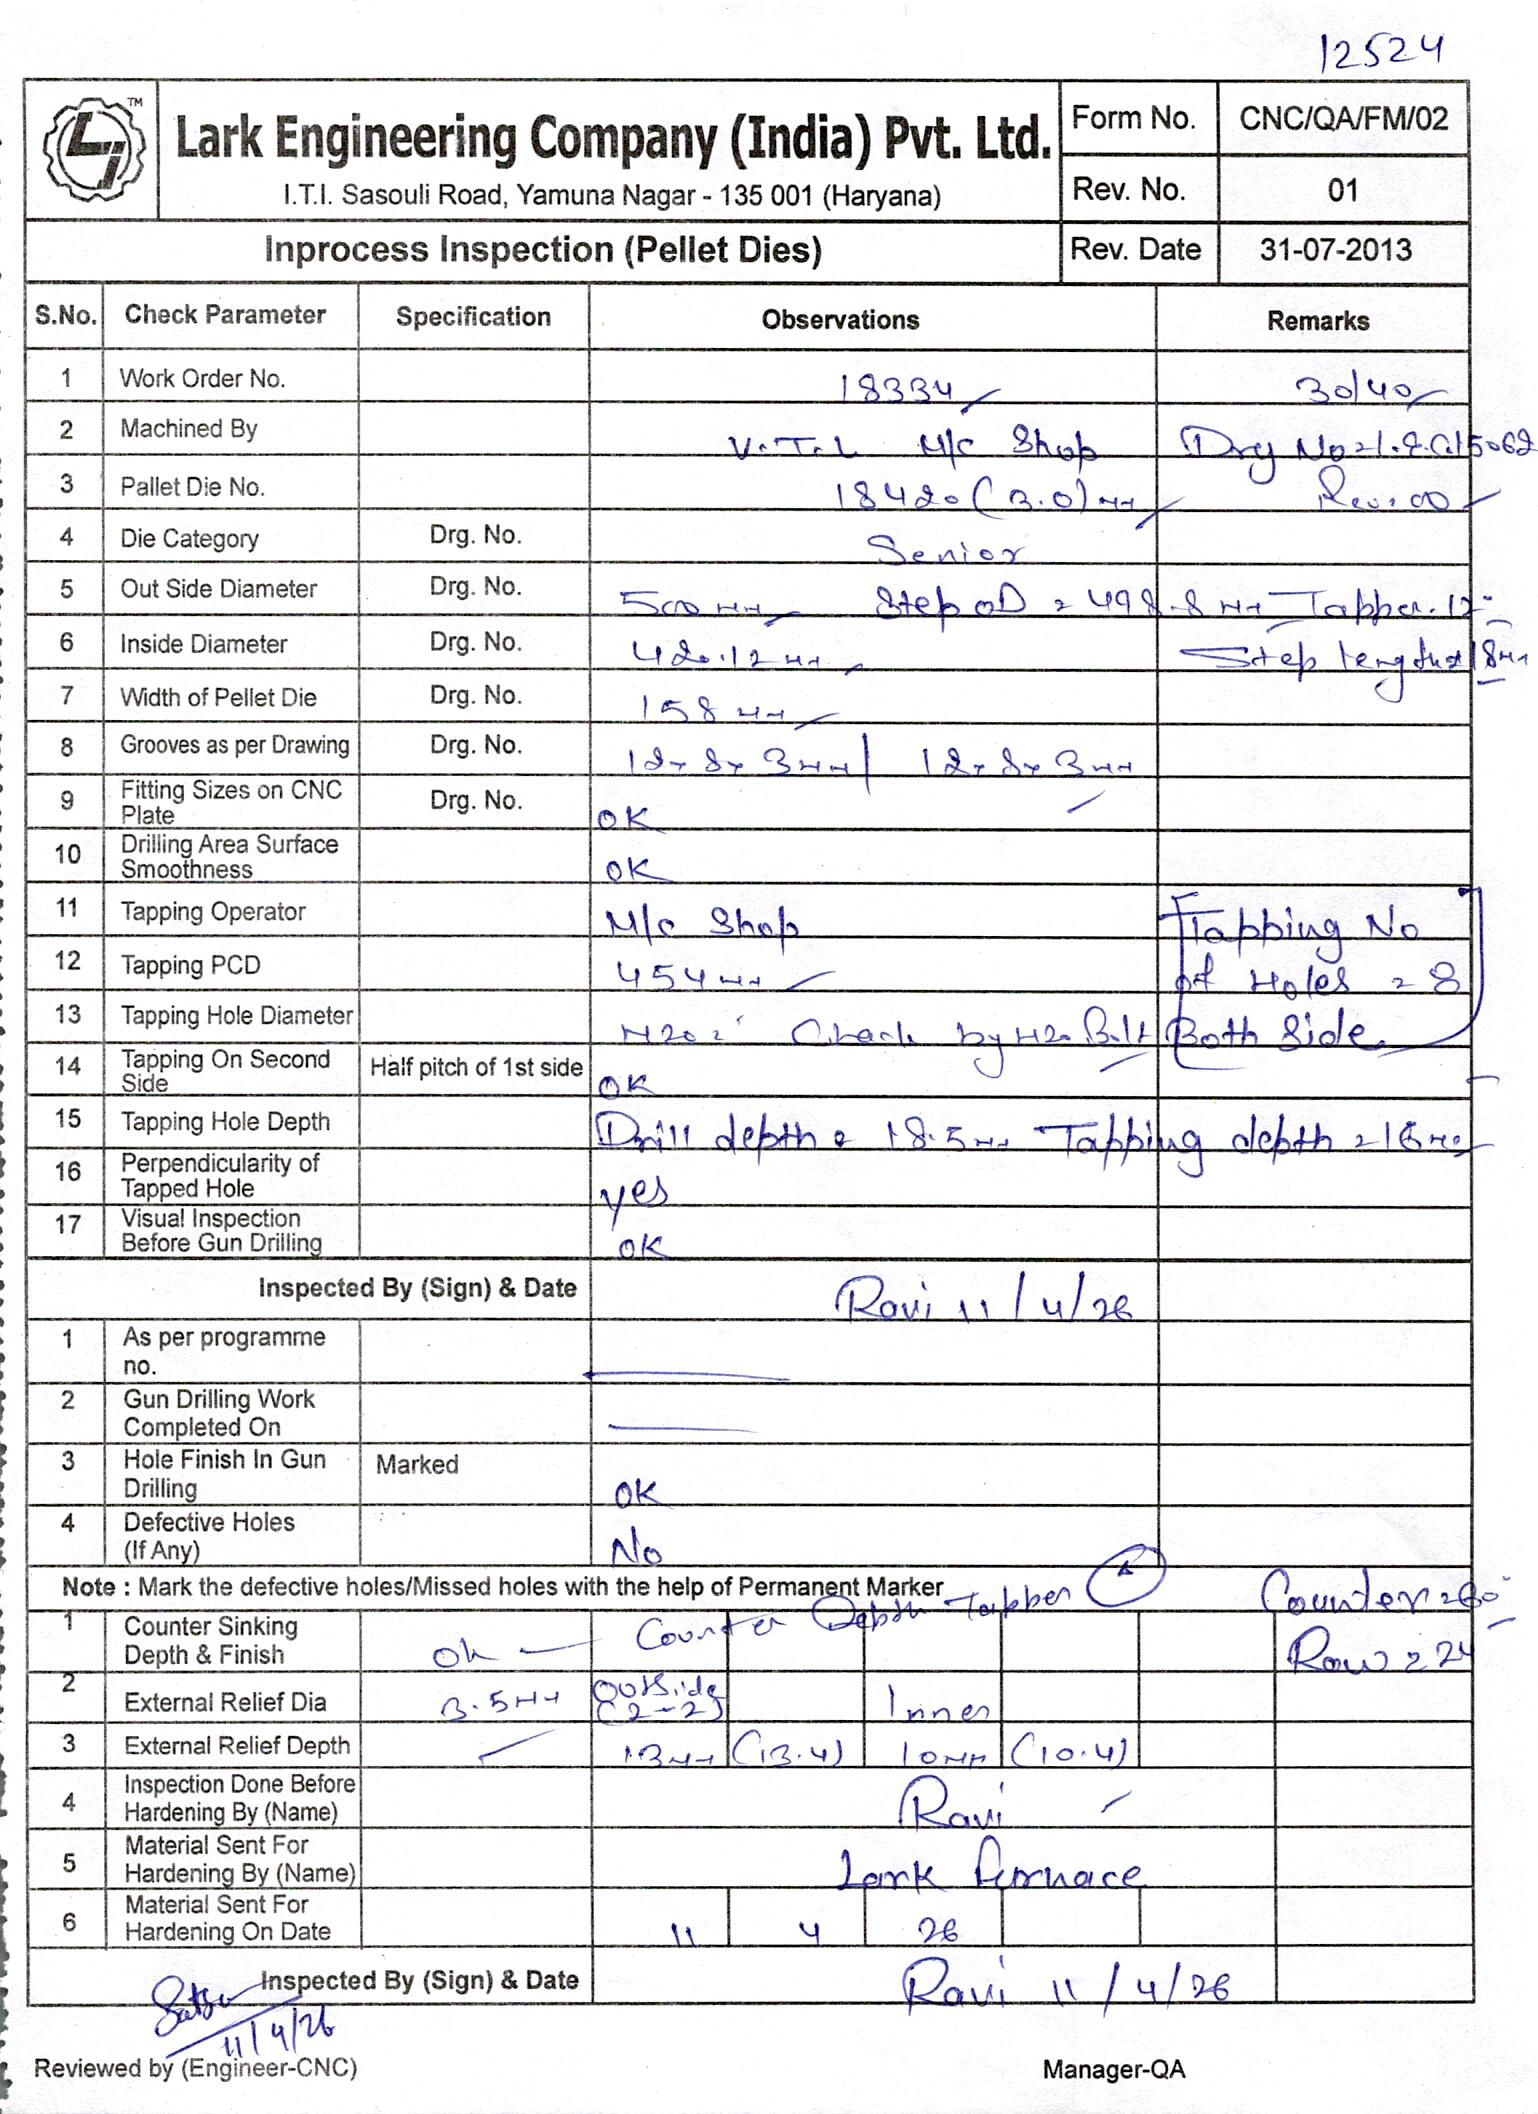 12524
TM
Lark Engineering Company (India) Pvt. Ltd.
I.T.I. Sasouli Road, Yamuna Nagar - 135 001 (Haryana)
Form No. CNC/QA/FM/02
Rev. No. 01
Inprocess Inspection (Pellet Dies) Rev. Date 31-07-2013
S.No. Check Parameter Specification Observations Remarks
1 Work Order No. 18334 30/40
2 Machined By V.T.L M/c Shop Drg No
3 Pallet Die No. 18420 (3.0) Rev: 00
4 Die Category Drg. No. Senior
5 Out Side Diameter Drg. No. 500 Step OD = 498.8 Tapper.
6 Inside Diameter Drg. No. 420.12 Step length 18
7 Width of Pellet Die Drg. No. 158
8 Grooves as per Drawing Drg. No. 12x8x3 | 12x8x3
9 Fitting Sizes on CNC Plate Drg. No. OK
10 Drilling Area Surface Smoothness OK
11 Tapping Operator M/c Shop Tapping No
12 Tapping PCD 454 of Holes = 8
13 Tapping Hole Diameter M20 Check by M20 Bolt Both Side
14 Tapping On Second Side Half pitch of 1st side OK
15 Tapping Hole Depth Drill depth = 18.5 Tapping depth = 16
16 Perpendicularity of Tapped Hole yes
17 Visual Inspection Before Gun Drilling OK
Inspected By (Sign) & Date Ravi 11/4/26
1 As per programme no.
2 Gun Drilling Work Completed On
3 Hole Finish In Gun Drilling Marked OK
4 Defective Holes (If Any) No
Note : Mark the defective holes/Missed holes with the help of Permanent Marker
1 Counter Sinking Depth & Finish Ok Counter Depth Tapper Counter = 60° Row = 24
2 External Relief Dia 3.5 Outside (2-2) Inner
3 External Relief Depth 13 (13.4) 10 (10.4)
4 Inspection Done Before Hardening By (Name) Ravi
5 Material Sent For Hardening By (Name) Lark Furnace
6 Material Sent For Hardening On Date 11 4 26
Inspected By (Sign) & Date Ravi 11/4/26
11/4/26
Reviewed by (Engineer-CNC) Manager-QA